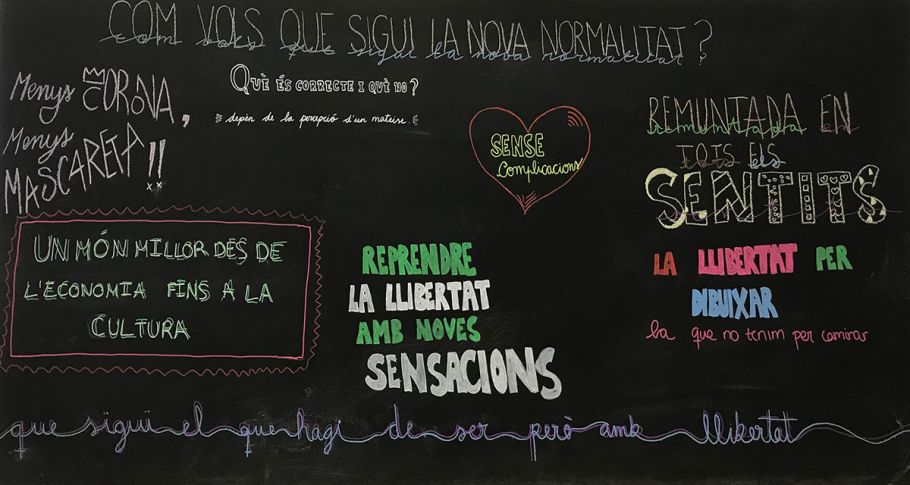 COM VOLS QUE SIGUI LA NOVA NORMALITAT?
Menys
CORONA,
Menys
MASCARETA!!
QUÈ ÉS CORRECTE I QUÈ NO?
depèn de la percepció d'un mateixe.
SENSE
Complicacions
REMUNTADA EN
TOTS ELS
SENTITS
UN MÓN MILLOR DES DE
L'ECONOMIA FINS A LA
CULTURA
REPRENDRE
LA LLIBERTAT
AMB NOVES
SENSACIONS
LA LLIBERTAT PER
DIBUIXAR
la que no tenim per caminar
que sigui el que hagi de ser però amb llibertat